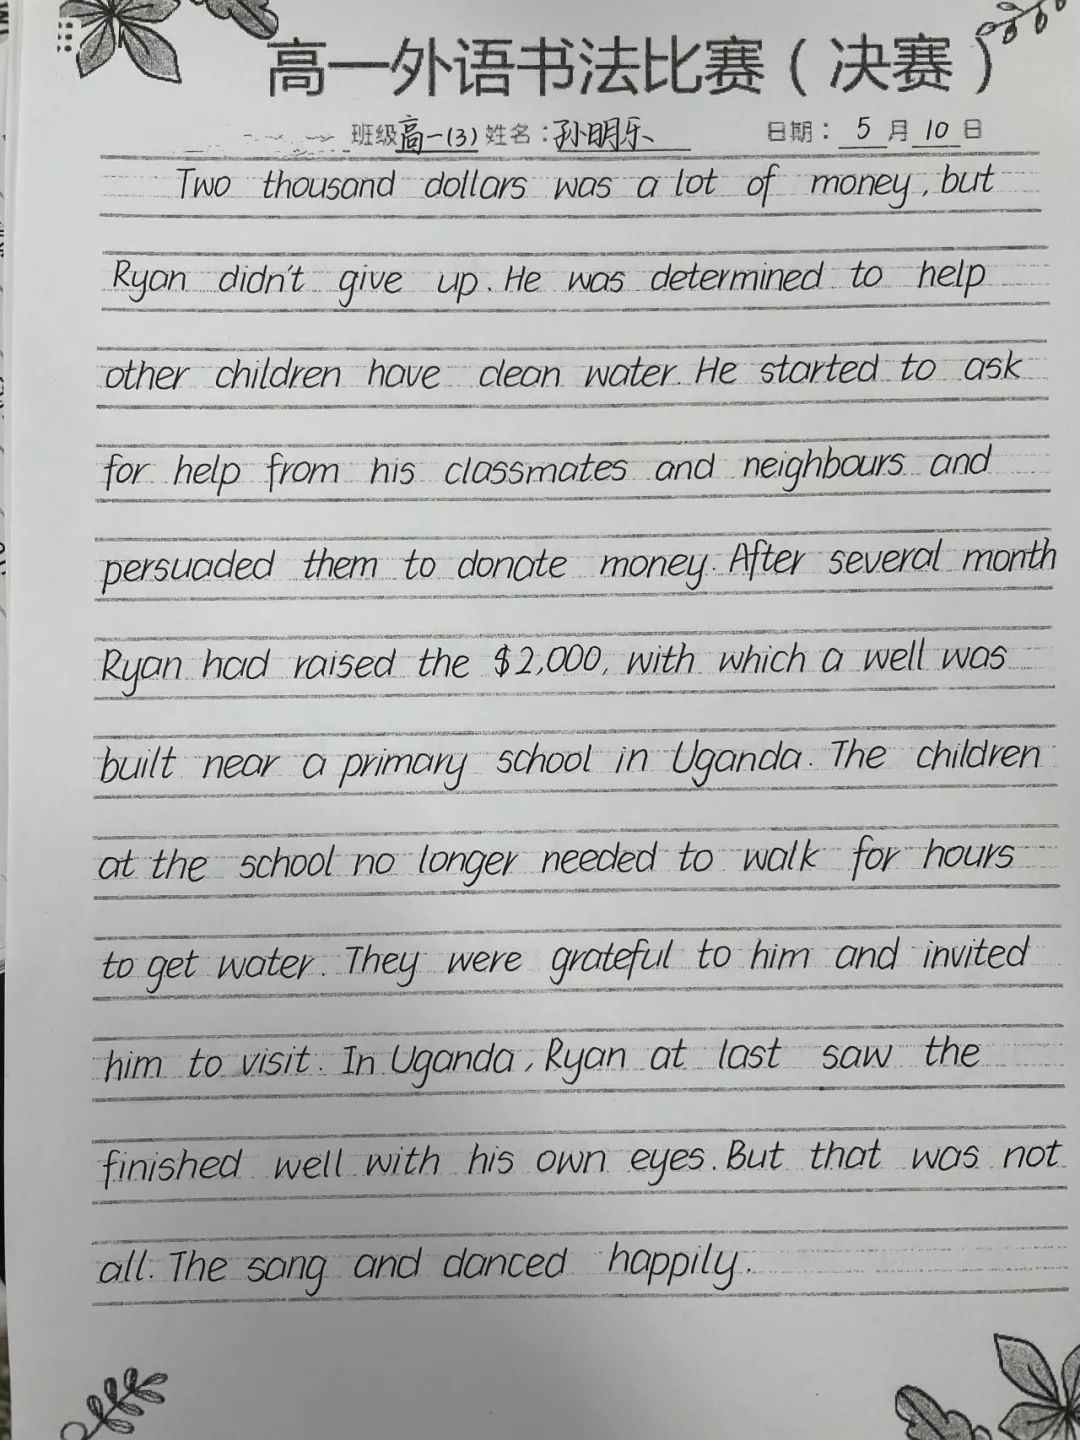 高一外语书法比赛（决赛）
班级高一(3) 姓名：孙明乐 日期： 5 月 10 日
Two thousand dollars was a lot of money, but
Ryan didn't give up. He was determined to help
other children have clean water. He started to ask
for help from his classmates and neighbours and
persuaded them to donate money. After several month
Ryan had raised the $2,000, with which a well was
built near a primary school in Uganda. The children
at the school no longer needed to walk for hours
to get water. They were grateful to him and invited
him to visit. In Uganda, Ryan at last saw the
finished well with his own eyes. But that was not
all. The sang and danced happily.